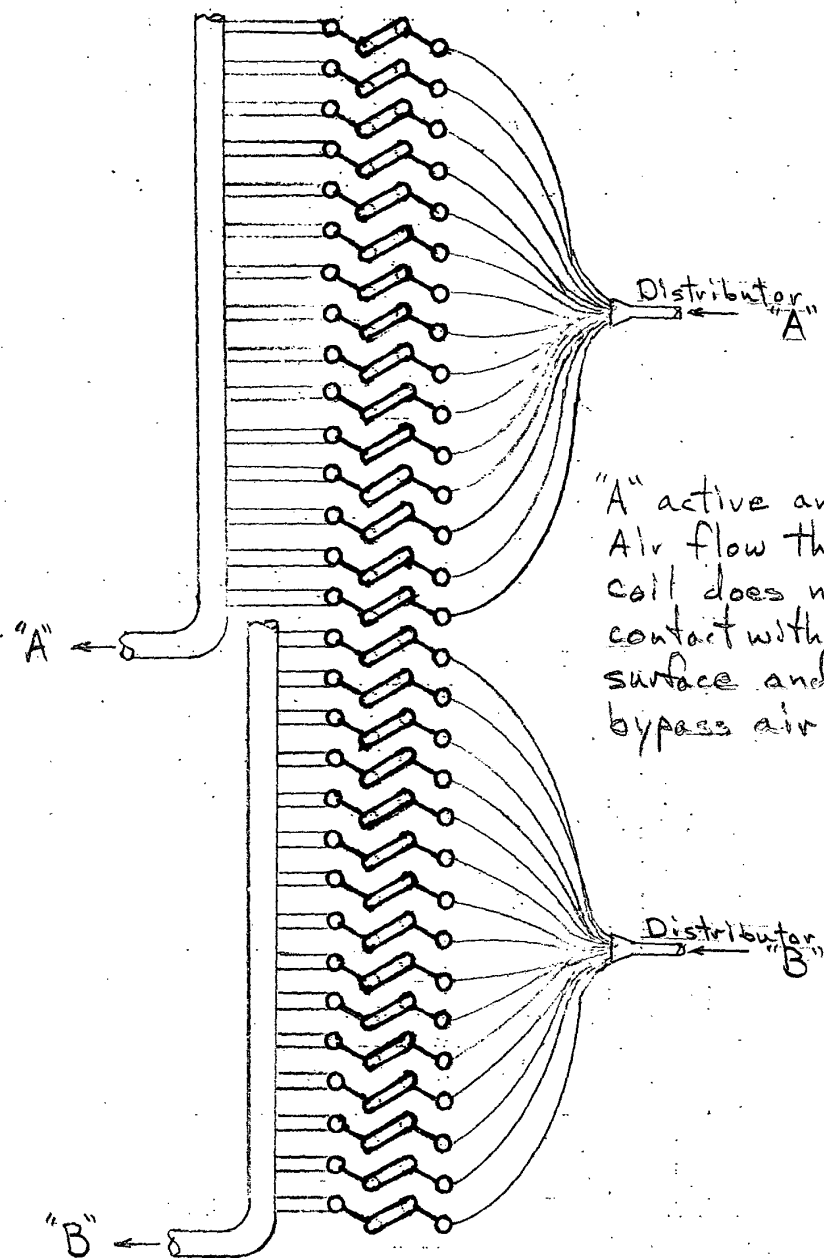 Distributor
"A"
"A" active an
Air flow th
coil does n
contact with
surface and
bypass air
"A"
Distributor
"B"
"B"